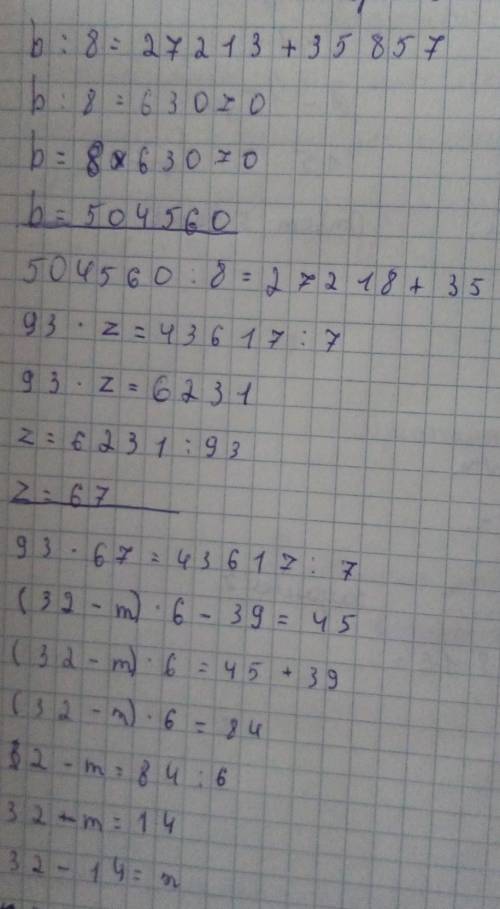 b : 8 = 27213 + 35857
b : 8 = 63070
b = 8 × 63070
b = 504560
504560 : 8 = 27218 + 35
93 · z = 43617 : 7
93 · z = 6231
z = 6231 : 93
z = 67
93 · 67 = 43617 : 7
(32 - m) · 6 - 39 = 45
(32 - m) · 6 = 45 + 39
(32 - m) · 6 = 84
32 - m = 84 : 6
32 - m = 14
32 - 14 = m